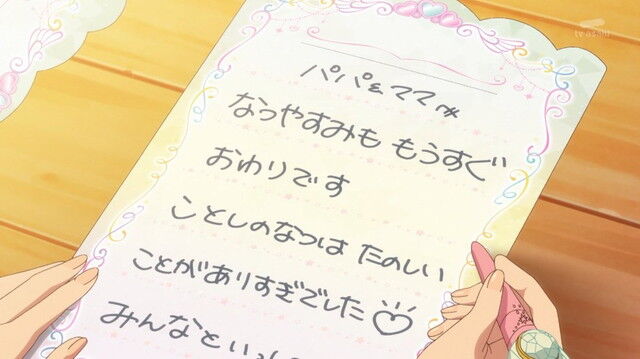 tv asahi
パパ&ママへ
なつやすみも もうすぐ
おわりです
ことしのなつは たのしい
ことがありすぎでした♡
みんなといっし